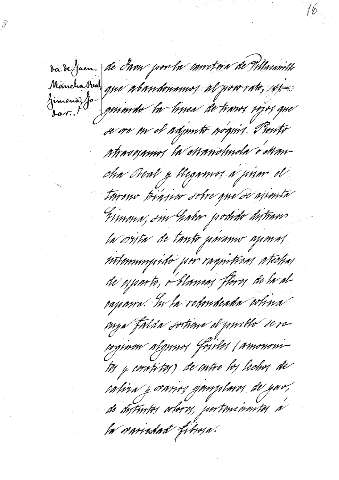 18
da de Jaen.
Mancha Real
Jimena, Jo-
dar.
de Jaen por la carretera de Villacarrillo
que abandonamos al poco rato, si-
guiendo la linea de trazos rojos que
se ve en el adjunto cróquis. Pronto
atravesamos la
cha Real y llegamos á pisar el
terreno triásico sobre que se asienta
Gimena, sin haber podido distraer
la vista de tanto páramo apenas
interrumpido por raquíticas atochas
de esparto, o blancas flores de la al-
caparra. En la redondeada colina
cuya falda sostiene el pueblo se re-
cogieron algunos fósiles (ammoni-
tes y ) de entre los lechos de
caliza y varios ejemplares de yeso,
de distintos colores, pertenecientes á
la variedad fibrosa.